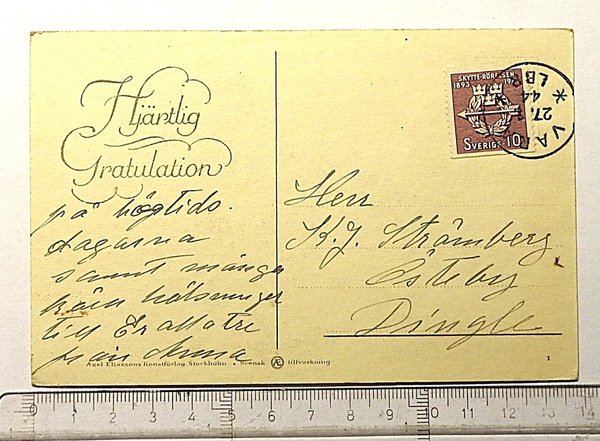 Hjärtlig
Gratulation
på högtids-
dagarna
samt många
kära hälsningar
till Er alla tre
från Anna
Axel Eliassons Konstförlag, Stockholm • Svensk Æ tillverkning
SKYTTE-RÖRELSEN
1893
SVERIGE 10
27.
44
LBR
VAR
Herr
K.J. Strömberg
Östeby
Dingle
1
0 1 2 3 4 5 6 7 8 9 10 11 12 13 14